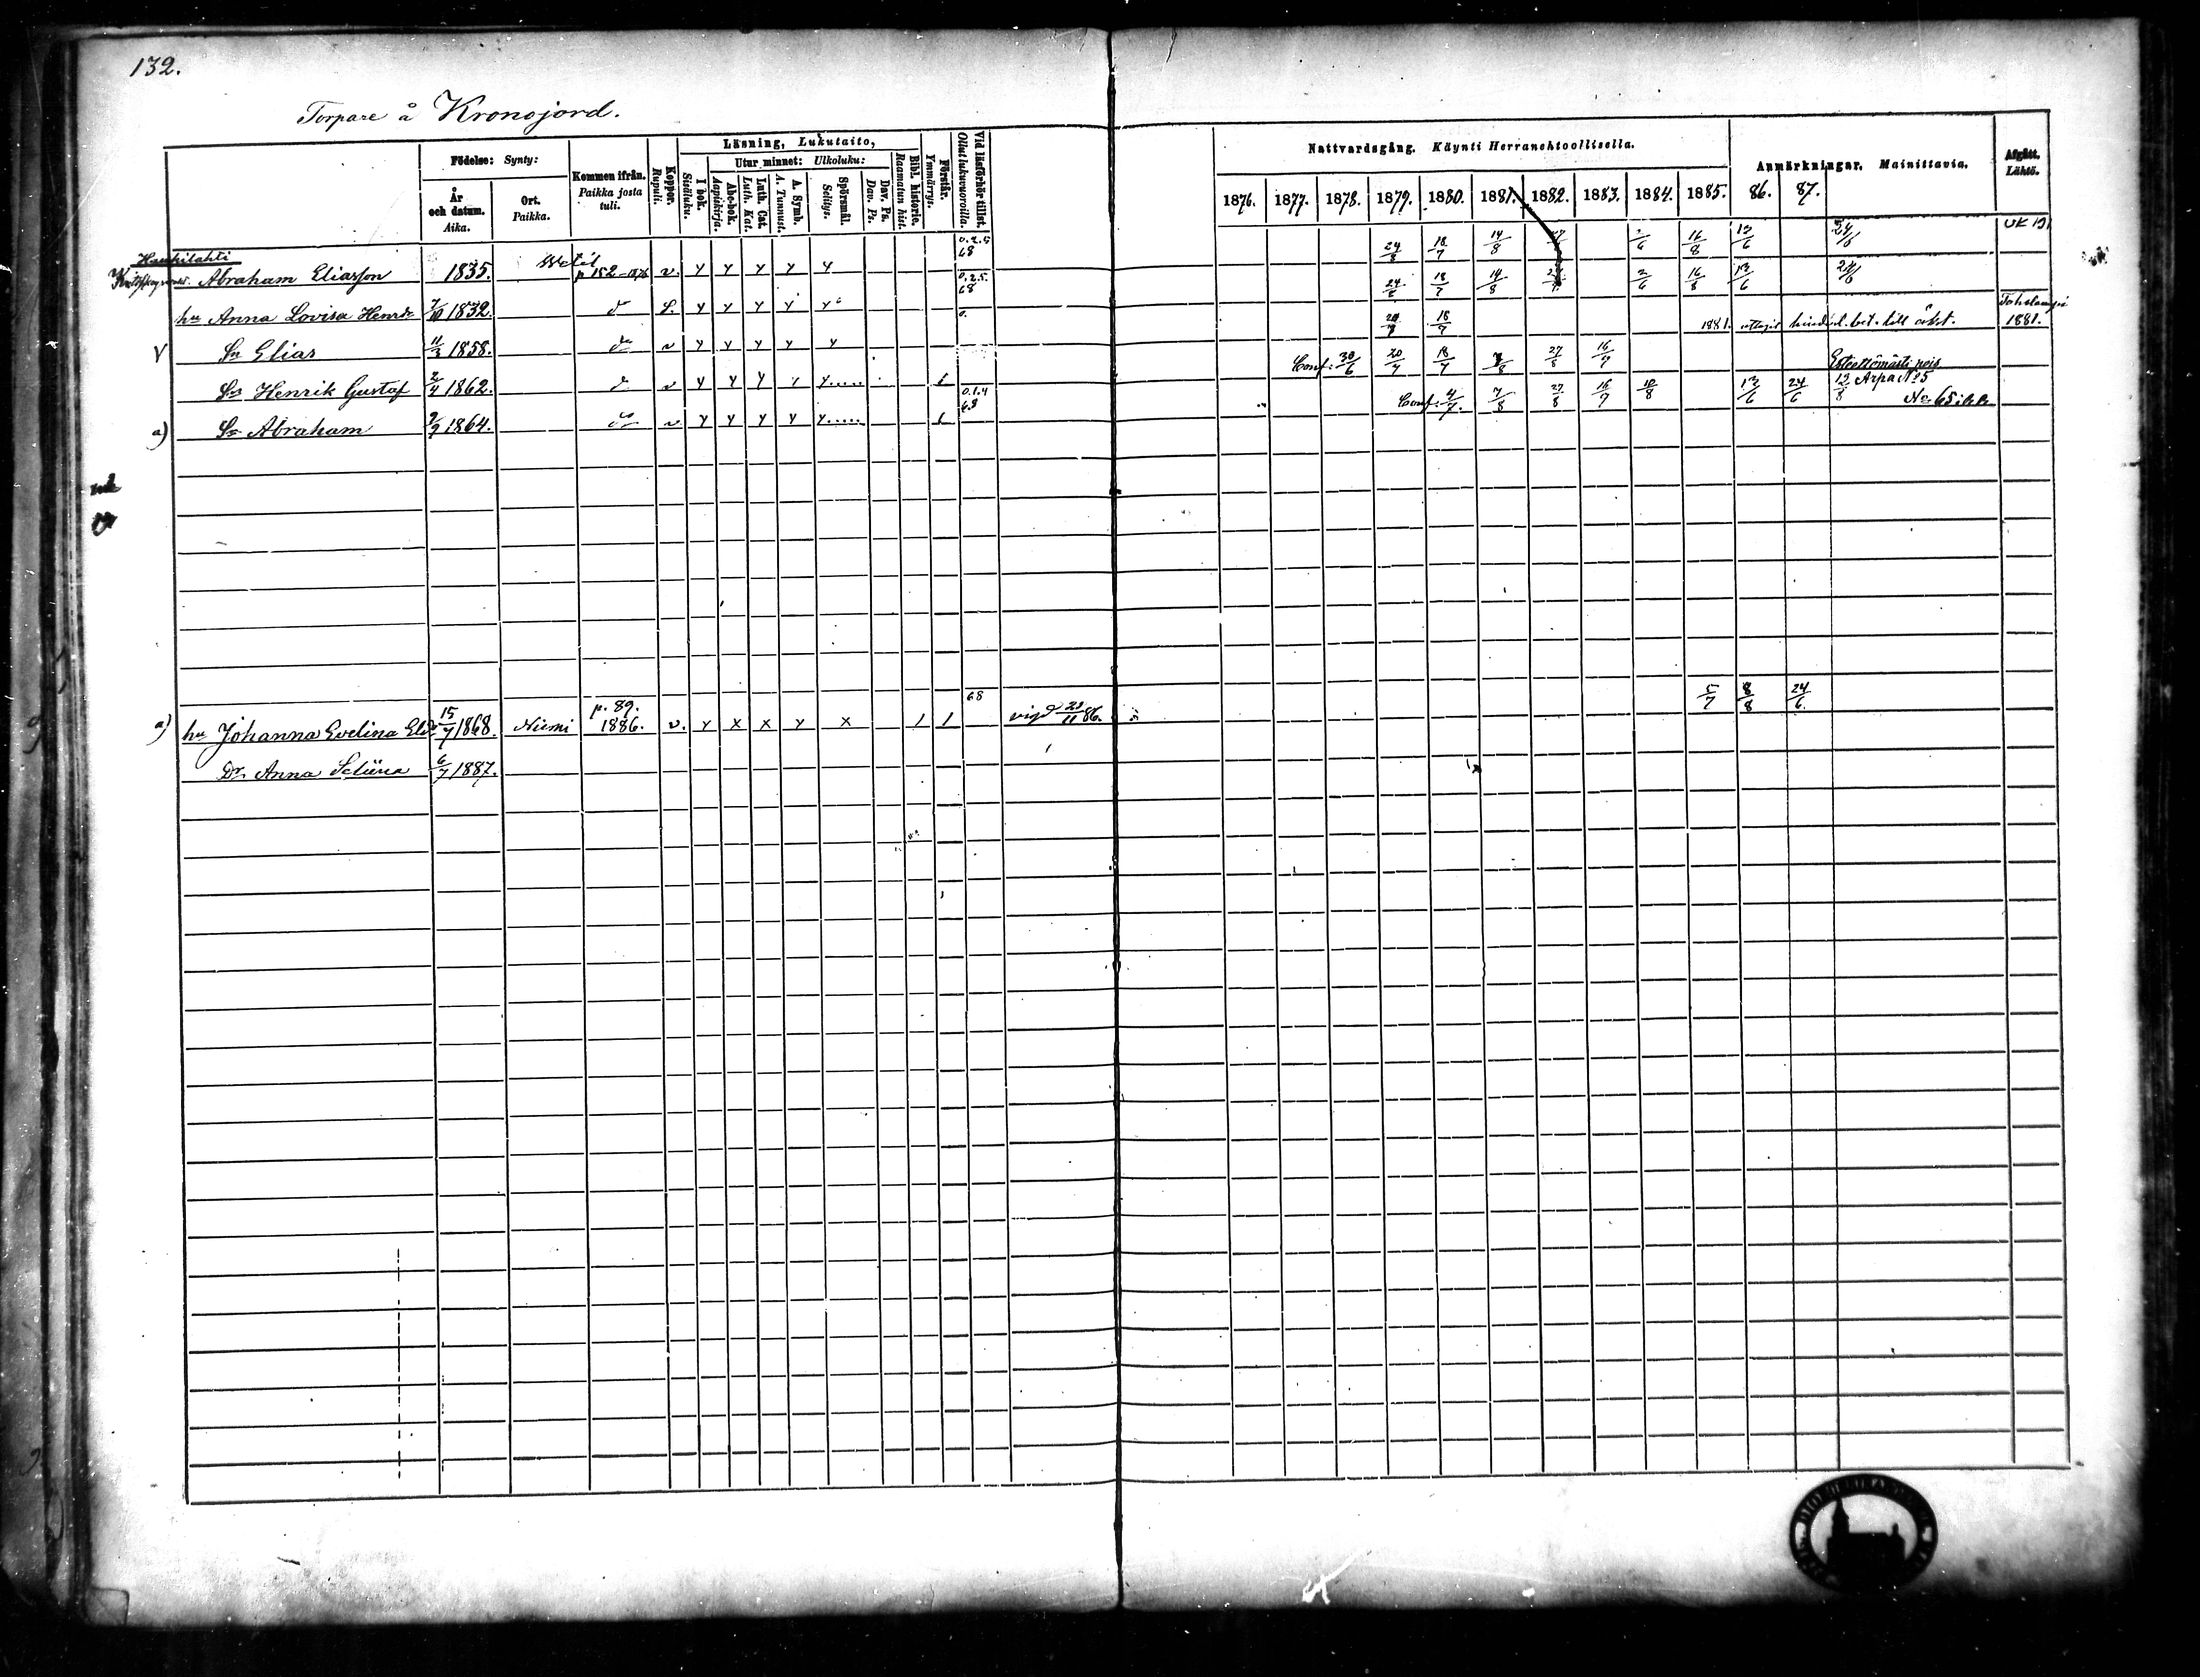 132.
Torpare å Kronojord.
Födelse: Synty:
År och datum. Aika.
Ort. Paikka.
Kommen ifrån. Paikka josta tuli.
Koppor. Rupuli.
Läsning, Lukutaito,
I bok. Sisäluku.
Utur minnet: Ulkoluku:
Abc-bok. Aapiskirja.
Luth. Cat. Luth. Kat.
A. Symb. A. Tunnust.
Spörsmål. Selitys.
Dav. Ps. Dav. Ps.
Bibl. historie. Raamatun hist.
Förstår. Ymmärrys.
Vid läsförhör tillst. Ollut lukuvuoroilla.
Nattvardsgång. Käynti Herranehtoollisella.
1876. 1877. 1878. 1879. 1880. 1881. 1882. 1883. 1884. 1885. 86. 87.
Anmärkningar. Mainittavia.
Afgått. Lähtö.
Haukilahti Wetil 0.2.5 68 24/8 18/7 14/8 16/8 13/6 24/6 UK 191
Abraham Eliasson 1835. p 152 v. y y y y y
0.2.5. 68 18/7 14/8 2/6 16/8 13/6 24/6
hu Anna Lovisa Henrdr 7/10 1832. d S. y y y y y
18/7 1881. hind. l. bet. till äkt. 1881.
V Sn Elias 11/3 1858. do v y y y y y
Conf: 30/6 20/7 18/7 27/8 16/7 Esteettömästi pois
Sn Henrik Gustaf 2/4 1862. d v y y y y y..... 1
0.1.4 68 Conf: 4/7. 7/8 27/8 16/7 10/8 13/6 24/6 13/8 Arpa No 5
No 65
a) Sn Abraham 2/9 1864. do v y y y y y..... 1
68 5/7 8/8 24/6
p. 89.
a) hu Johanna Evelina Elisdr 15/7 1868. Niemi 1886. v. y x x y x 1 1 vigd 21/11 86.
Dr. Anna 6/7 1887.